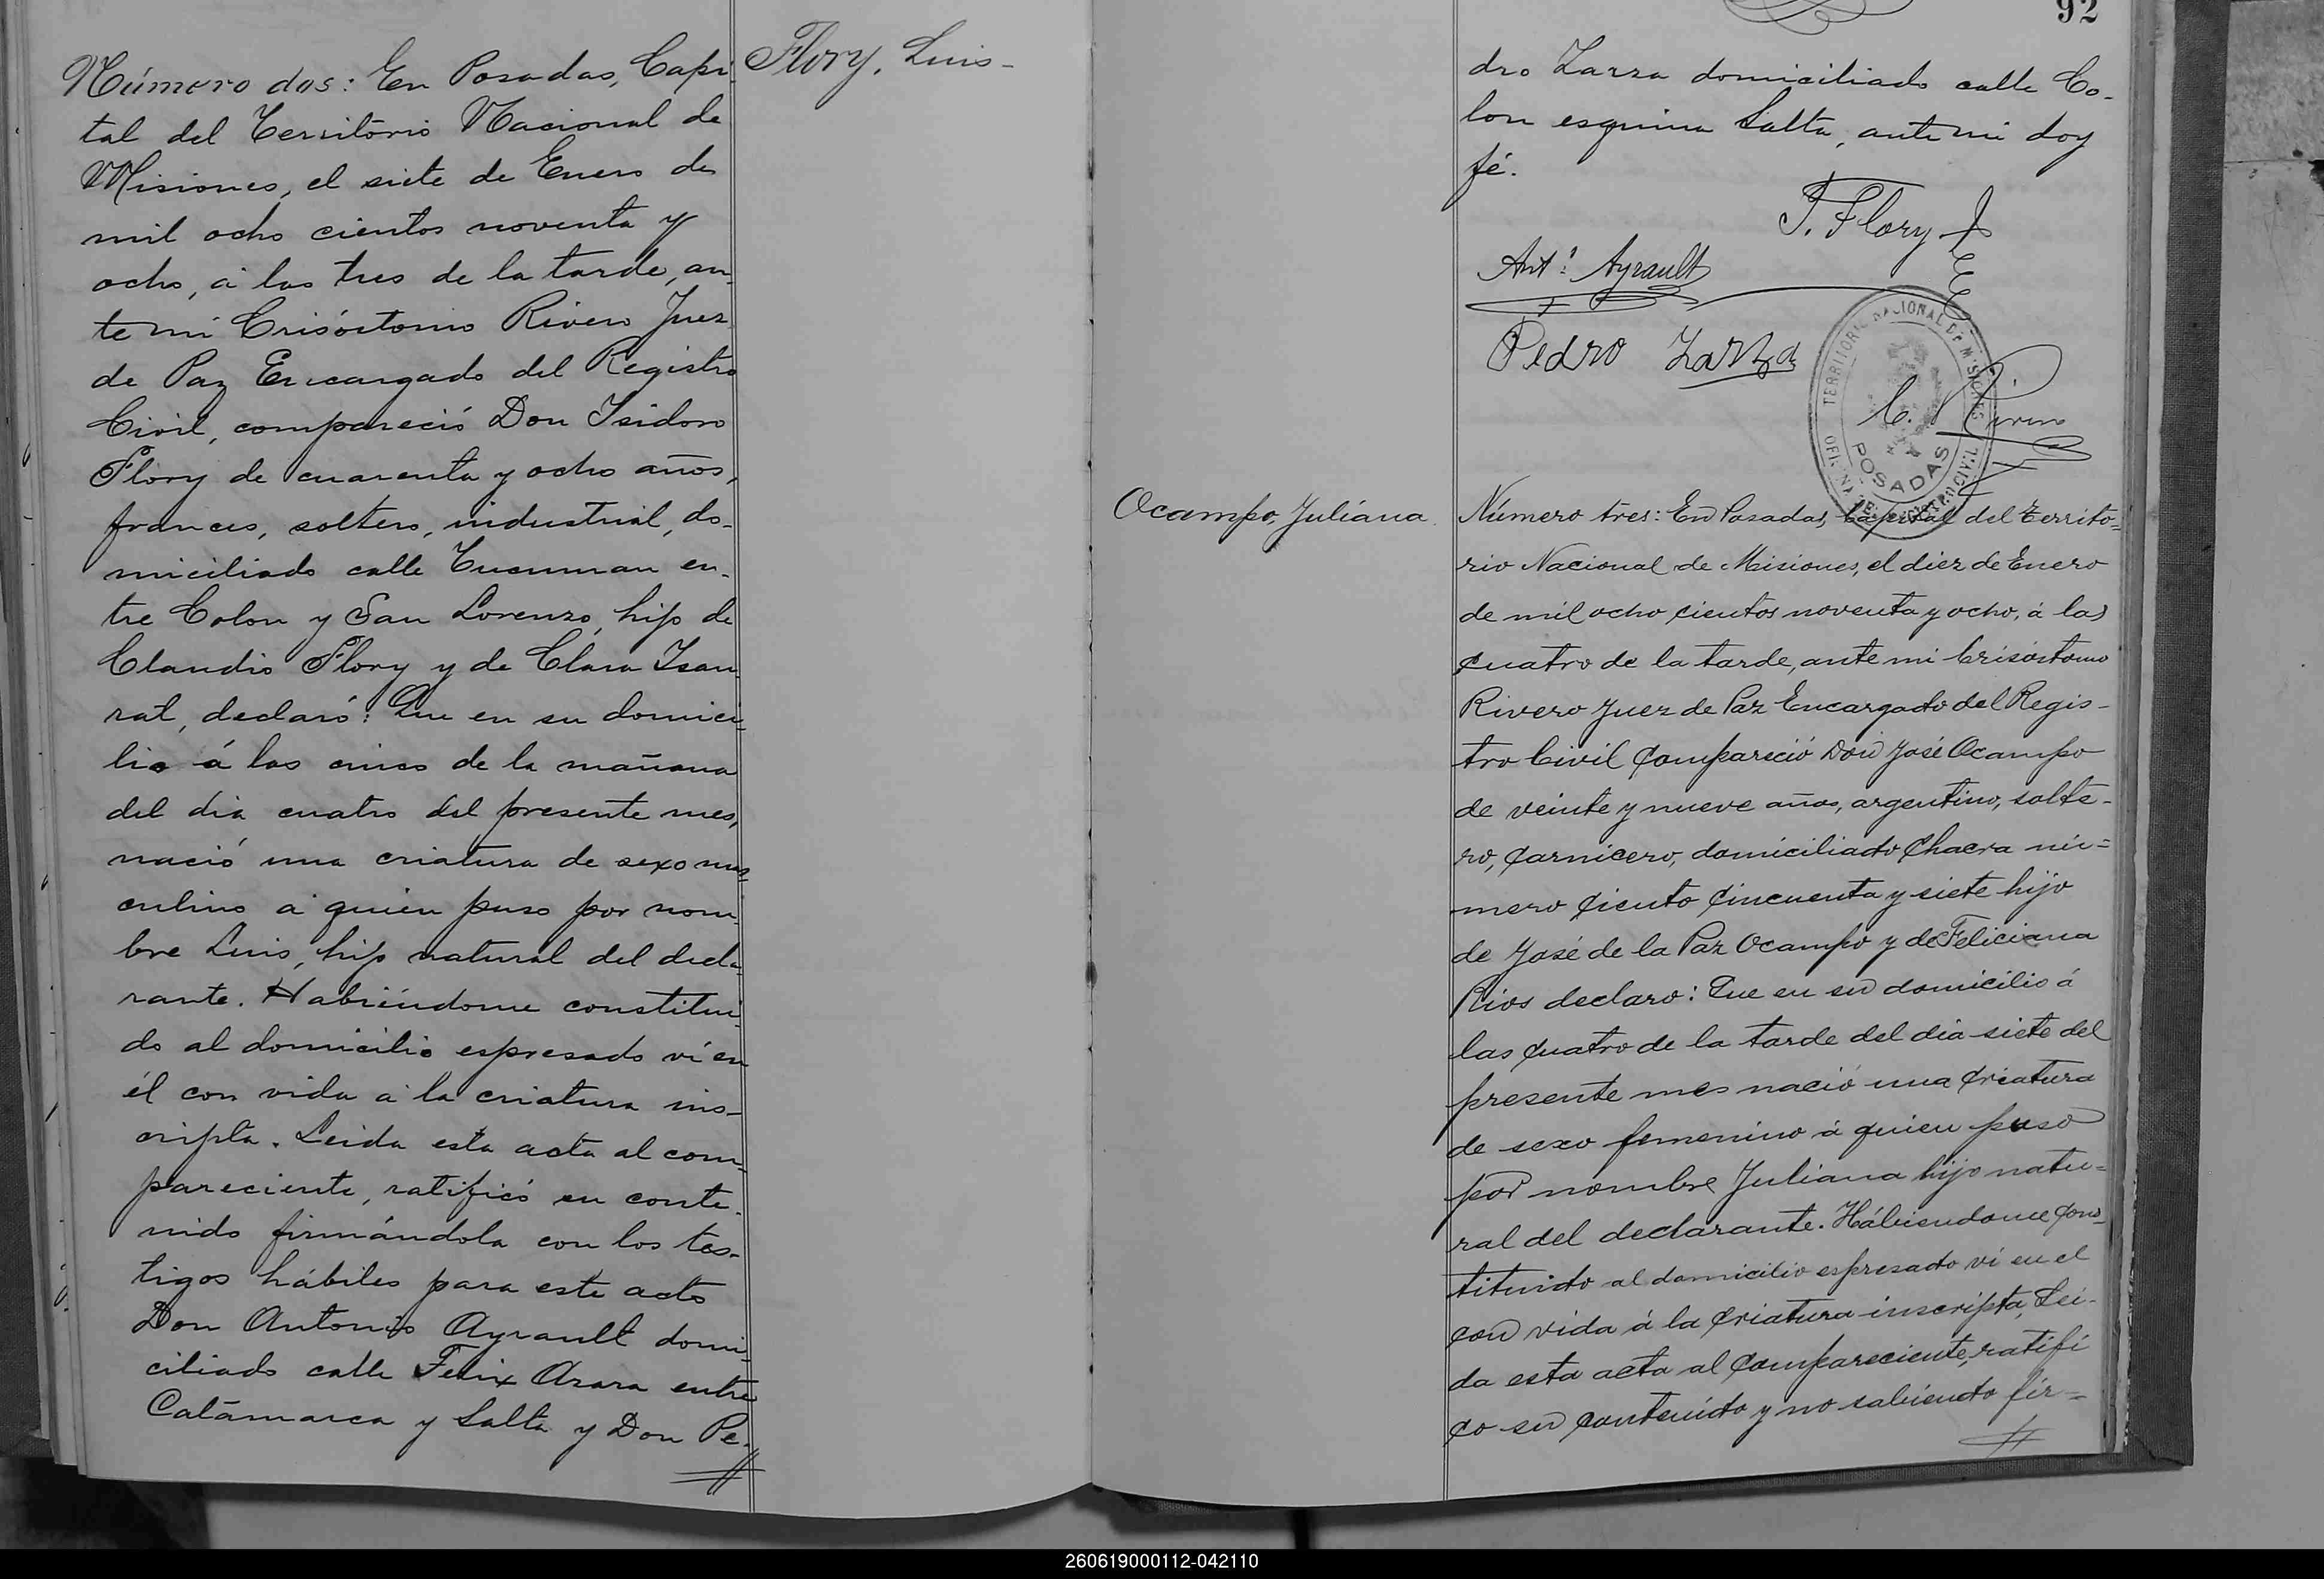 Número dos: En Posadas, Capi-
tal del Territorio Nacional de
Misiones, el siete de Enero de
mil ocho cientos noventa y
ocho, á las tres de la tarde, an-
te mi Crisóstomo Rivero Juez
de Paz Encargado del Registro
Civil, compareció Don Isidoro
Flory de cuarenta y ocho años,
frances, soltero, industrial, do-
miciliado calle Tucuman en-
tre Colon y San Lorenzo, hijo de
Claudio Flory y de Clara Isau-
rat, declaró: Que en su domici-
lio á las cinco de la mañana
del dia cuatro del presente mes,
nació una criatura de sexo mas-
culino a quien puso por nom-
bre Luis, hijo natural del decla-
rante. Habiéndome constitui-
do al domicilio espresado ví en
él con vida a la criatura ins-
cripta. Leida esta acta al com-
pareciente, ratificó su conte-
nido firmándola con los tes-
tigos hábiles para este acto
Don Antonio Ayrault domi-
ciliado calle Felix Azara entre
Catamarca y Salta y Don Pe-
Flory, Luis-
92
dro Zarza domiciliado calle Co-
lon esquina Salta, ante mi doy
fé.
Y. Flory
Ant.º Ayrault
Pedro Zarza
C. Rivero
TERRITORIO NACIONAL DE MISIONES
OFICINA DEL REGISTRO CIVIL
POSADAS
Ocampo, Juliana
Número tres: En Posadas, Capital del Territo-
rio Nacional de Misiones, el diez de Enero
de mil ocho cientos noventa y ocho, á las
cuatro de la tarde, ante mi Crisóstomo
Rivero Juez de Paz Encargado del Regis-
tro Civil compareció Don José Ocampo
de veinte y nueve años, argentino, solte-
ro, carnicero, domiciliado Chacra nú-
mero ciento cincuenta y siete hijo
de José de la Paz Ocampo y de Feliciana
Rios declaro: Que en su domicilio á
las cuatro de la tarde del dia siete del
presente mes nació una criatura
de sexo femenino á quien puso
por nombre Juliana hijo natu-
ral del declarante. Hábiendome cons-
tituido al domicilio espresado vi en el
con vida á la criatura inscripta, Lei-
da esta acta al compareciente, ratifi
co su contenido y no sabiendo fir-